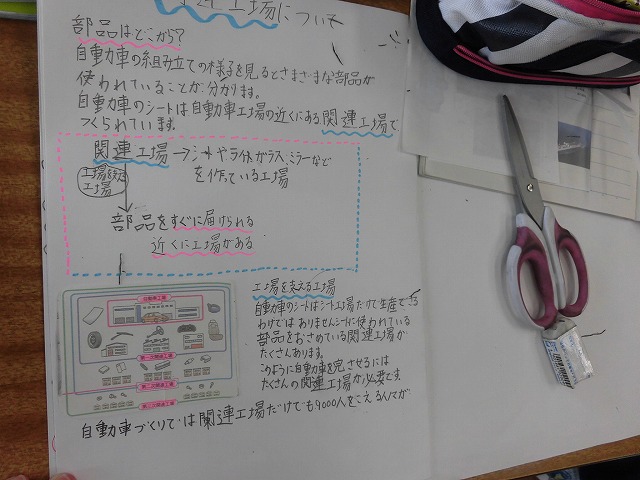 工場について
部品はどこから?
自動車の組み立ての様子を見るとさまざまな部品が
使われていることが分かります。
自動車のシートは自動車工場の近くにある関連工場で
つくられています。
関連工場→シートやライト、ガラス、ミラーなど
を作っている工場
工場を支える
工場
部品をすぐに届けられる
近くに工場がある
工場を支える工場
自動車のシートはシート工場だけで生産できる
わけではありませんシートに使われている
部品をおさめている関連工場が
たくさんあります。
このように自動車を完せさせるには
たくさんの関連工場が必要です。
自動車づくりでは関連工場だけでも9000人をこえる人々が
自動車工場
第一次関連工場
第二次関連工場
第三次関連工場